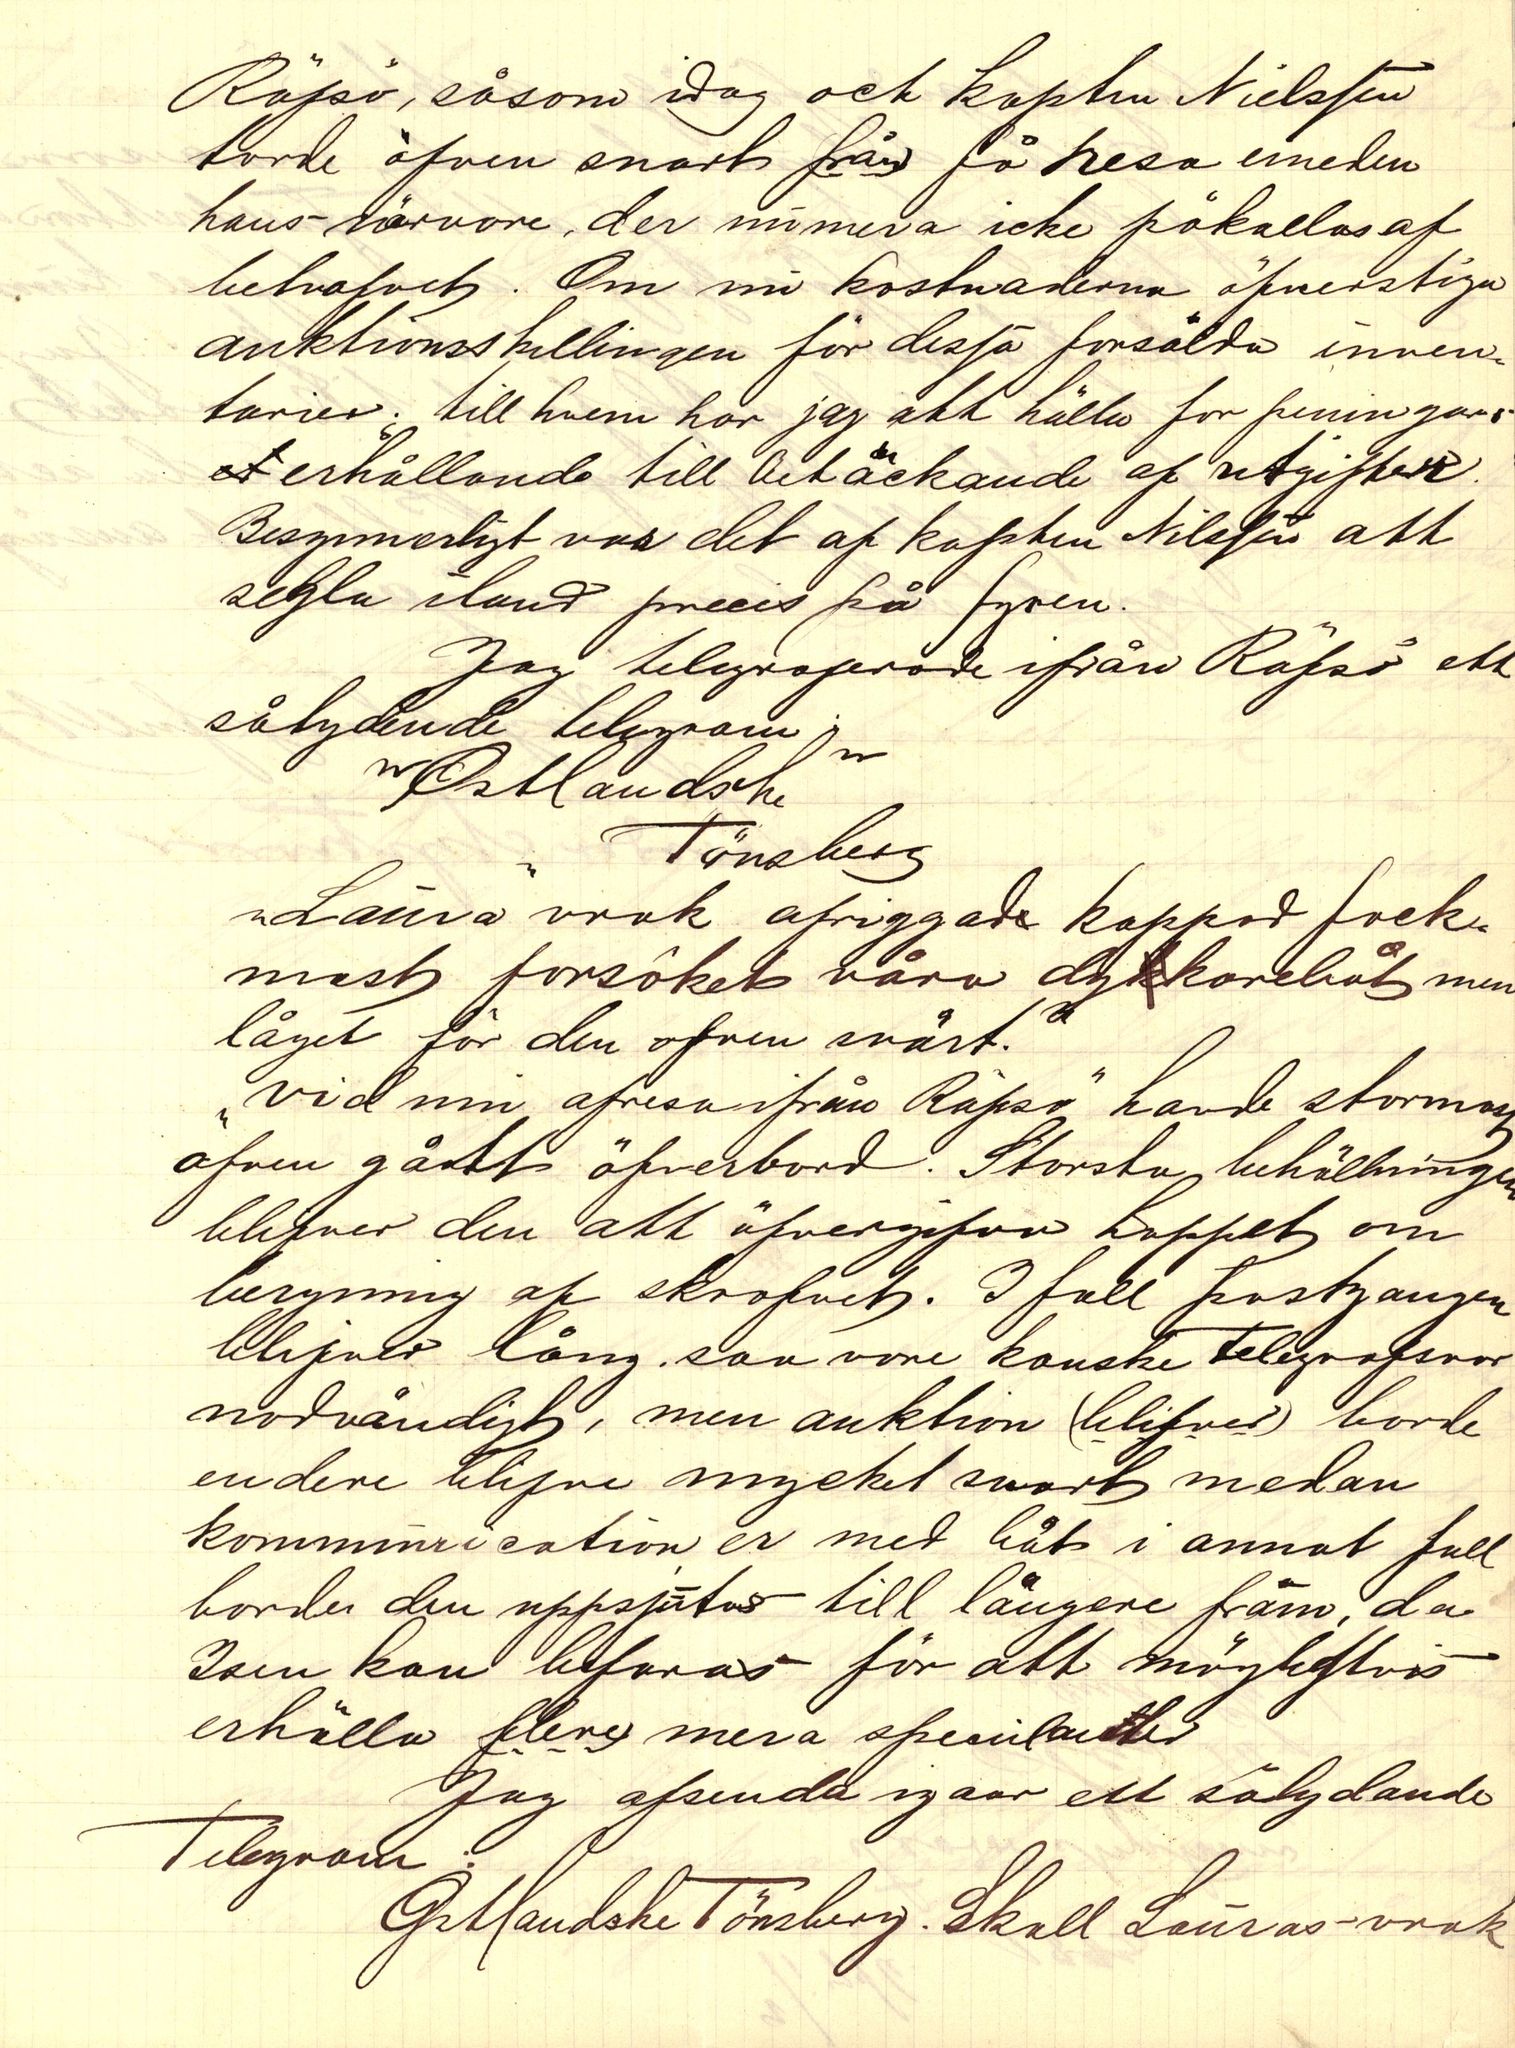 Räfsö, såsom idag och kapten Nielssen
torde äfven snart från få resa emedan
hans närvaro, der numera icke påkallas af
behofvet. Om nu kostnaderna öfverstiga
auktionsskillingen för dessa forsålda inven-
tarier. till hvem har jag att hålla for peningars
erhållande till betäckande af utgifter.
Besynnerligt var det af kapten Nilssen att
segla iland precis på fyren.
Jag telegraferade ifrån Räfsö ett
sålydende telegram:
"Östlandske"
Tönsberg
"Laura" vrak afriggade kappad fock-
mast forsöket våra dykkarebåt men
läget för den äfven svårt."
"Vid min afresa ifrån Räfsö" hande stormast
äfven gått öfverbord. Storsta behållningen
blifver den att öfvergifva hoppet om
bergning af skrofvet. I fall postgangen
blifver lång. saa vore kanske Telegrafsvar
nodvändigt, men auktion (blifver) borde
endere blifve mycket snart medan
kommunication er med båt i annat fall
borde den uppsjutas till längere fram, da
Isen kan befaras för att möjligtvis
erhålla flere mera spekulanter
Jag afsenda igaar ett sålydande
Telegram:
Östlandske Tönsberg. Skall Lauras-vrak